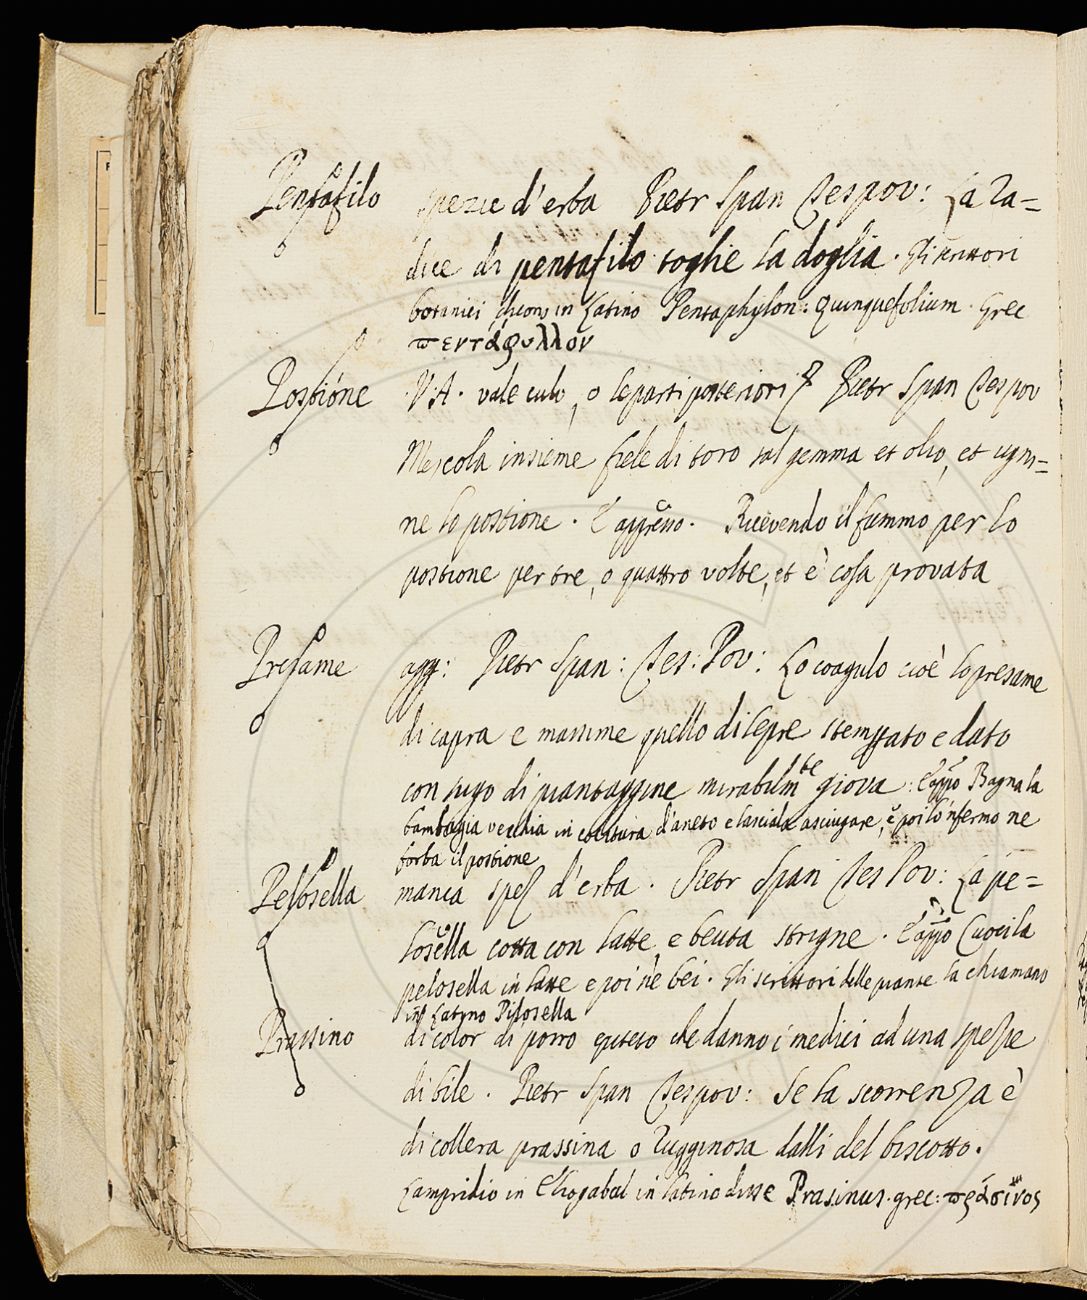 Pentafilo spezie d'erba Pietr Span Tes pov: La ra=
dice di pentafilo toglie la doglia. Gli scrittori
botanici dicono in Latino Pentaphylon: Quinquefolium. Grec
πεντάφυλλον
Postione V.A. vale culo, o le parti posteriori Pietr Span Tes pov
Mescola insieme fiele di toro sal gemma et olio, et ugni=
ne lo postione. E appresso. Ricevendo il fummo per lo
postione per tre, o quattro volte, et è cosa provata
Presame agg: Pietr Span: Tes: Pov: Lo coagulo cioè lo presame
di capra e massime quello di lepre stemprato e dato
con sugo di piantaggine mirabilmte giova: E appo Bagna la
bambagia vecchia in cocitura d'aneto e lasciala asciugare, e poi lo 'nfermo ne
forba il postione
Pelosella manca spez d'erba. Pietr Span Tes Pov: La pe=
losella cotta con latte, e beuta strigne. E appo Cuoci la
pelosella in latte e poi ne bei. Gli scrittori delle piante la chiamano
in Latino Pilosella
Prassino di color di porro epiteto che danno i medici ad una spezie
di bile. Pietr Span Tes pov: Se la scorrenza è
di collera prassina o rugginosa dalli del biscotto.
Lampridio in Eliogabal in latino disse Prasinus. grec: πράσινος